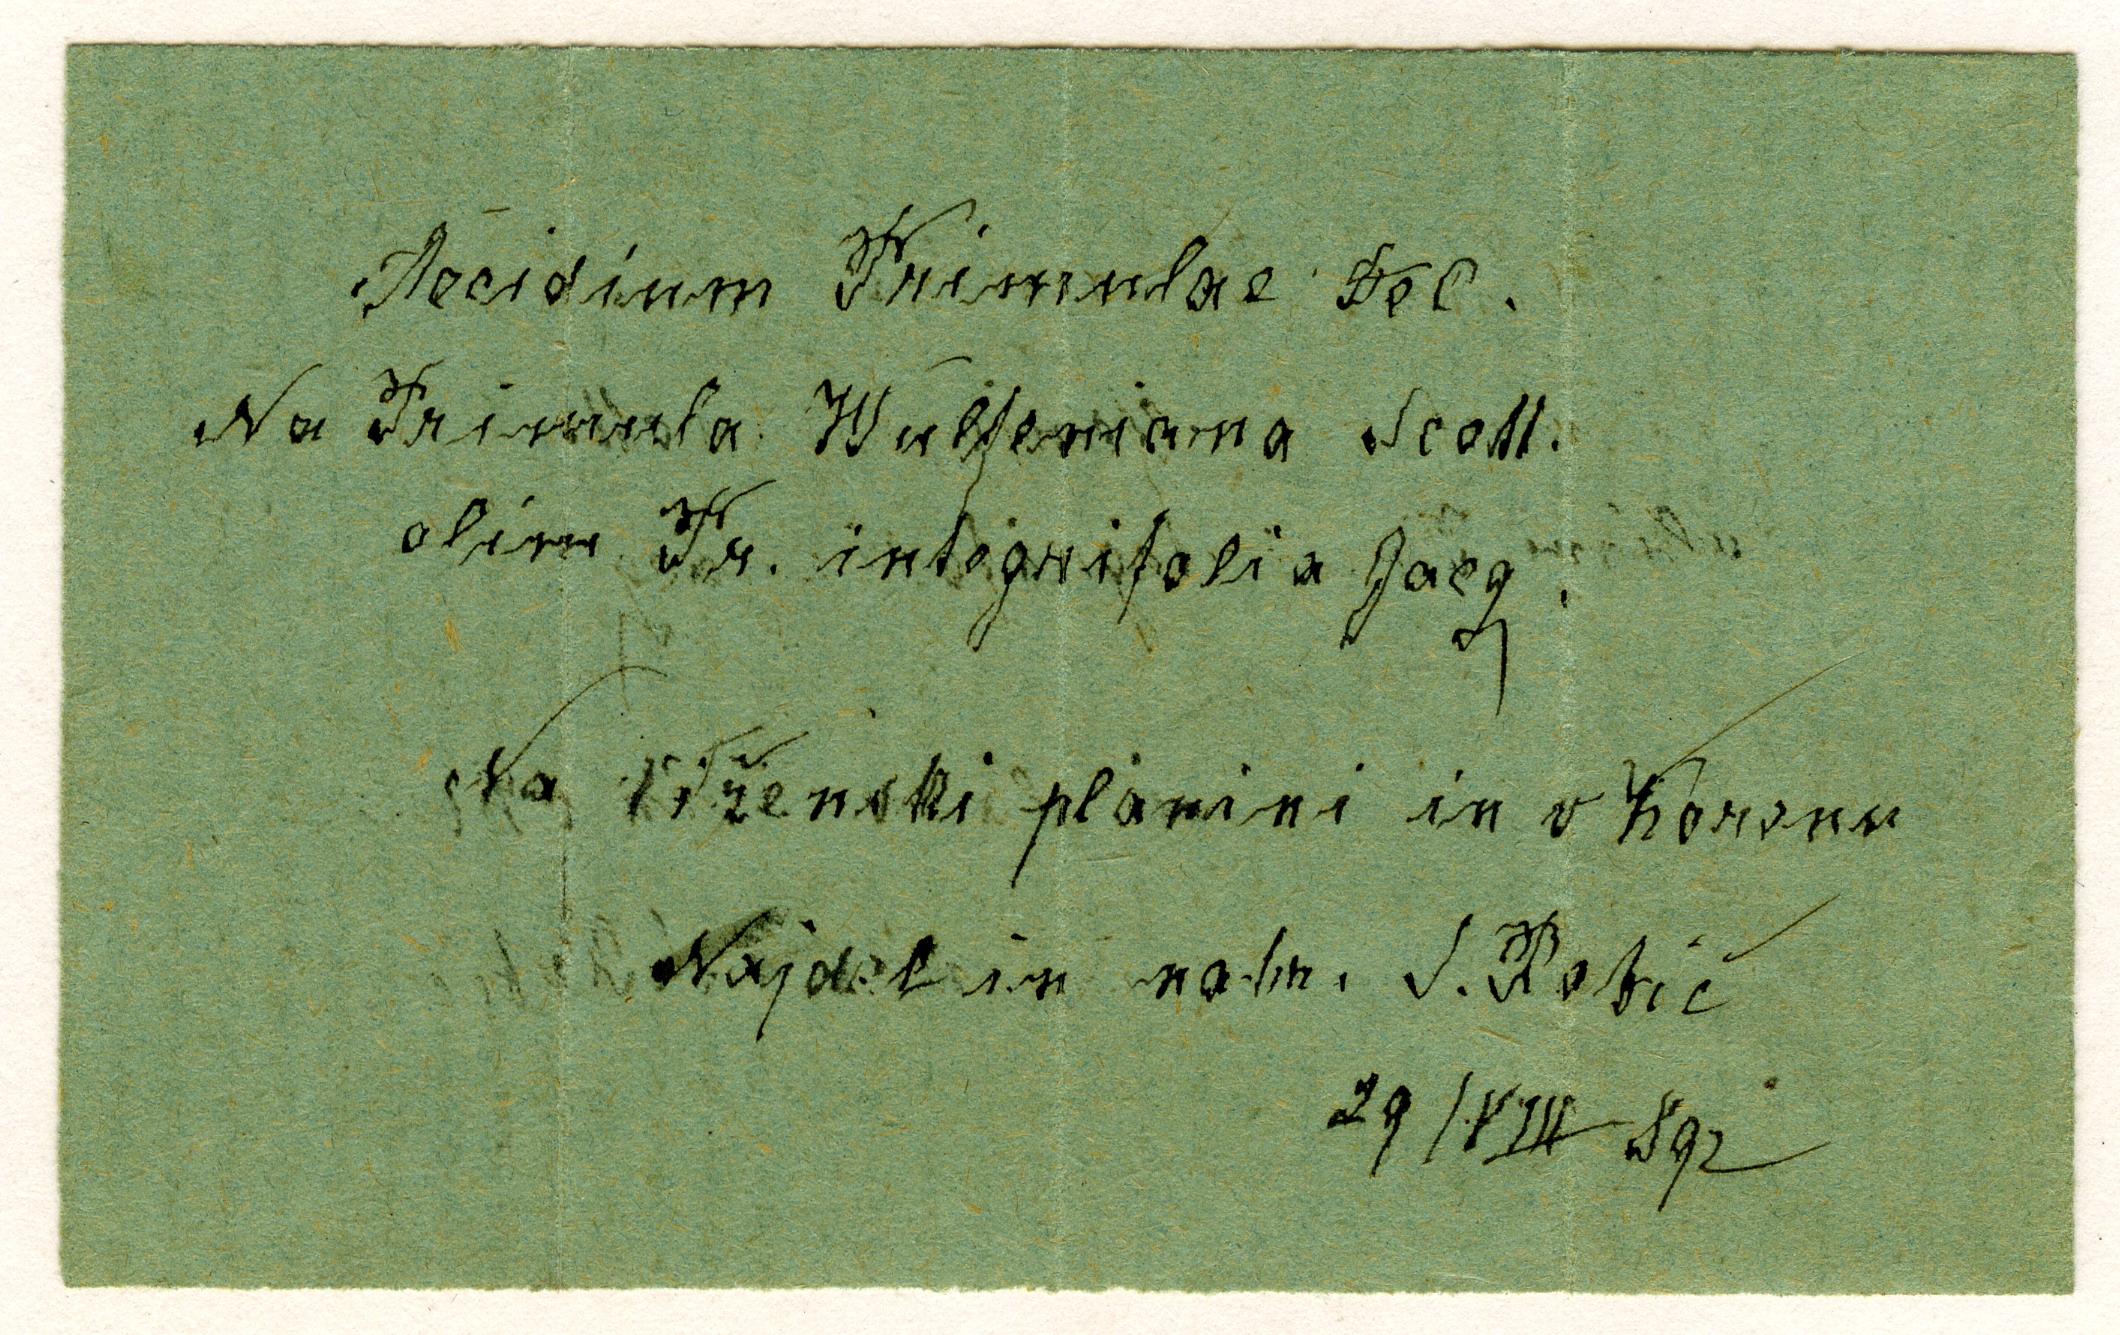 Aecidium Primulae DeC.
Na Primula Wulfeniana Scott.
olim Pr. integrifolia Jacq.
Na planini in v Korenu
Najdel in nabr. S. Robič
29/VIII 892